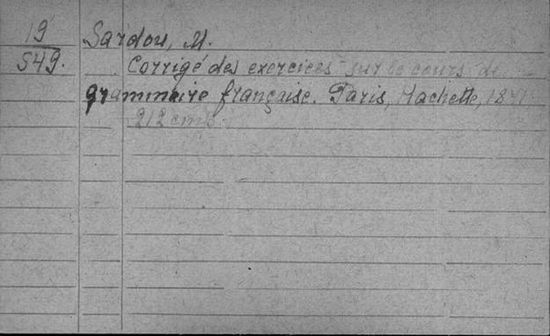 19
549.
Sardou, M.
Corrigé des exercices sur le cours de
grammaire française. Paris, Hachette,
212 стр.